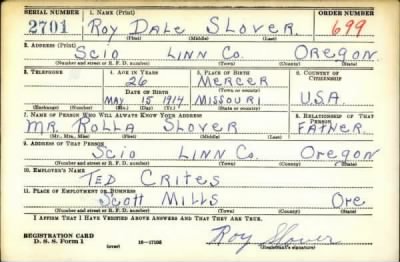 SERIAL NUMBER 1. NAME (Print) ORDER NUMBER
2701 ROY DALE SLOVER. 699
(First) (Middle) (Last)
2. ADDRESS (Print)
SCIO LINN CO. OREGON
(Number and street or R. F. D. number) (Town) (County) (State)
3. TELEPHONE 4. AGE IN YEARS 5. PLACE OF BIRTH 6. COUNTRY OF CITIZENSHIP
26 MERCER
DATE OF BIRTH (Town or county)
MAY 15 1914 MISSOURI U.S.A
(Exchange) (Number) (Mo.) (Day) (Yr.) (State or country)
7. NAME OF PERSON WHO WILL ALWAYS KNOW YOUR ADDRESS 8. RELATIONSHIP OF THAT PERSON
MR. ROLLA SLOVER FATHER.
(Mr., Mrs., Miss) (First) (Middle) (Last)
9. ADDRESS OF THAT PERSON
Scio LINN CO. OREGON
(Number and street or R. F. D. number) (Town) (County) (State)
10. EMPLOYER'S NAME
TED CRITES
11. PLACE OF EMPLOYMENT OR BUSINESS
SCOTT MILLS ORE
(Number and street or R. F. D. number) (Town) (County) (State)
I AFFIRM THAT I HAVE VERIFIED ABOVE ANSWERS AND THAT THEY ARE TRUE.
REGISTRATION CARD Roy Slover
D. S. S. Form 1 (over) 16—17105 (Registrant's signature)